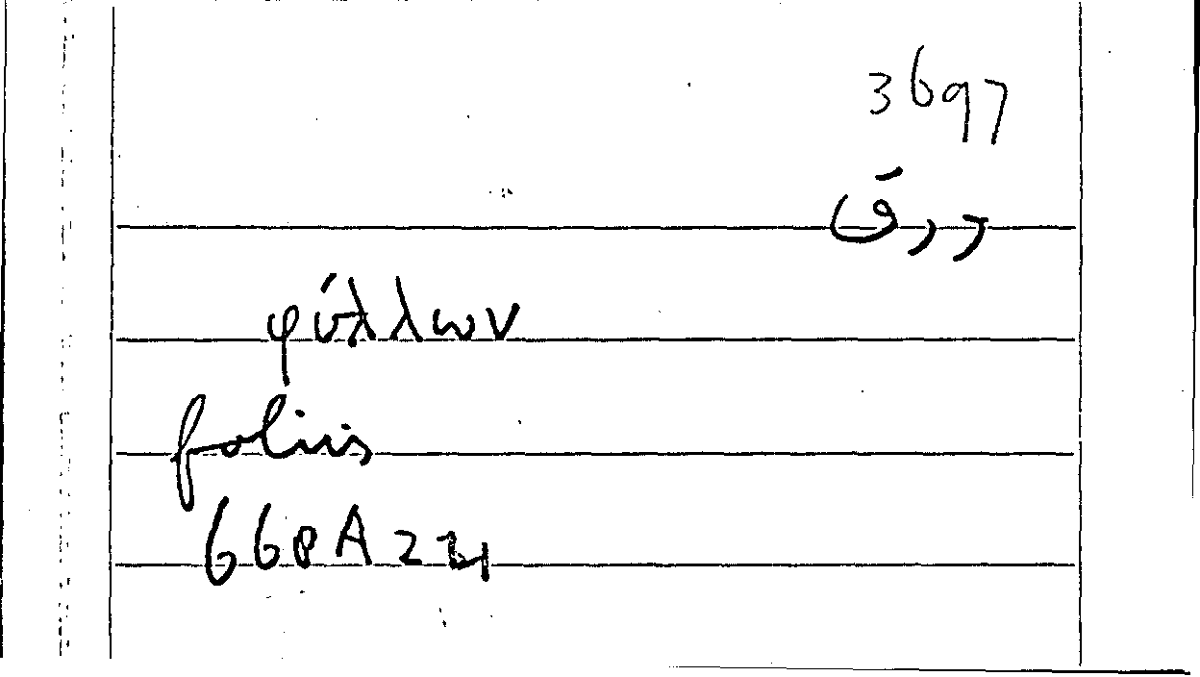 3697
ورق
φύλλων
foliis
66pA224